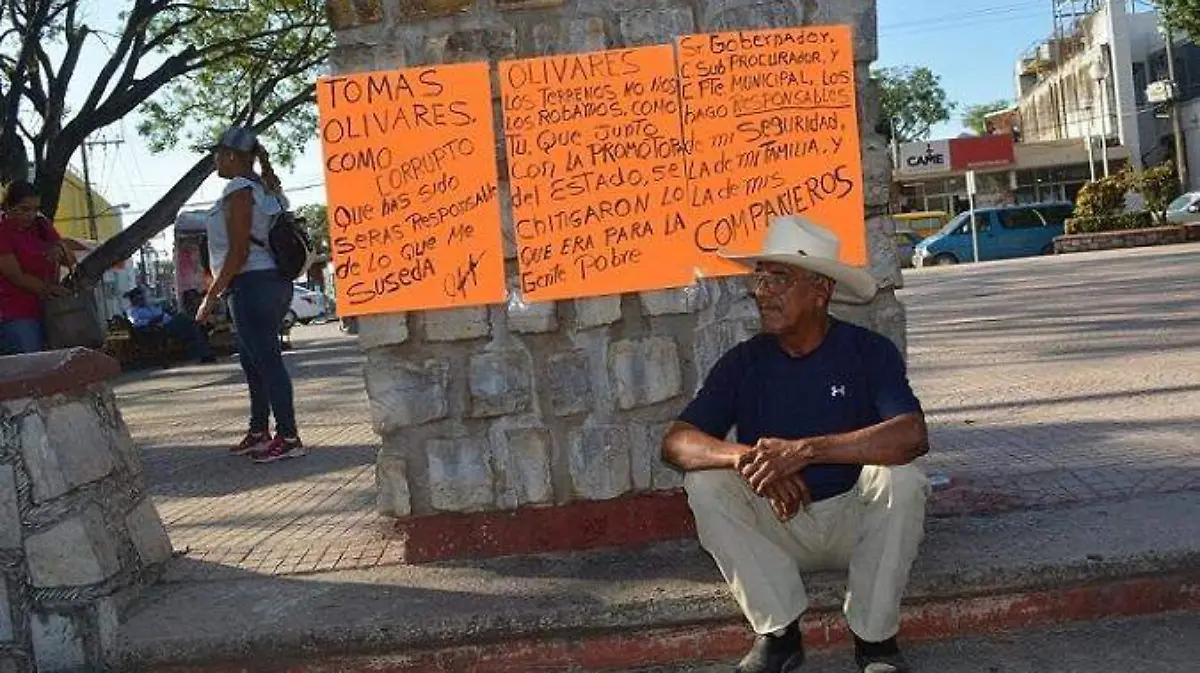 TOMAS
OLIVARES.
COMO
CORRUPTO
QUE HAS SIDO
SERAS RESPONSABLE
de LO QUE ME
SUSEDA
OLIVARES
LOS TERRENOS NO NOS
ROBAMOS, COMO
TU, QUE JUNTO
CON LA PROMOTORA
del ESTADO, SE
CHITIGARON LO
QUE ERA PARA LA
Gente POBRE
Sr. GOBERNADOR,
C SUB PROCURADOR, Y
C PTE MUNICIPAL, LOS
HAGO RESPONSABLES
de MI SEGURIDAD,
LA de MI FAMILIA, Y
LA de MIS
COMPAÑEROS
CAME